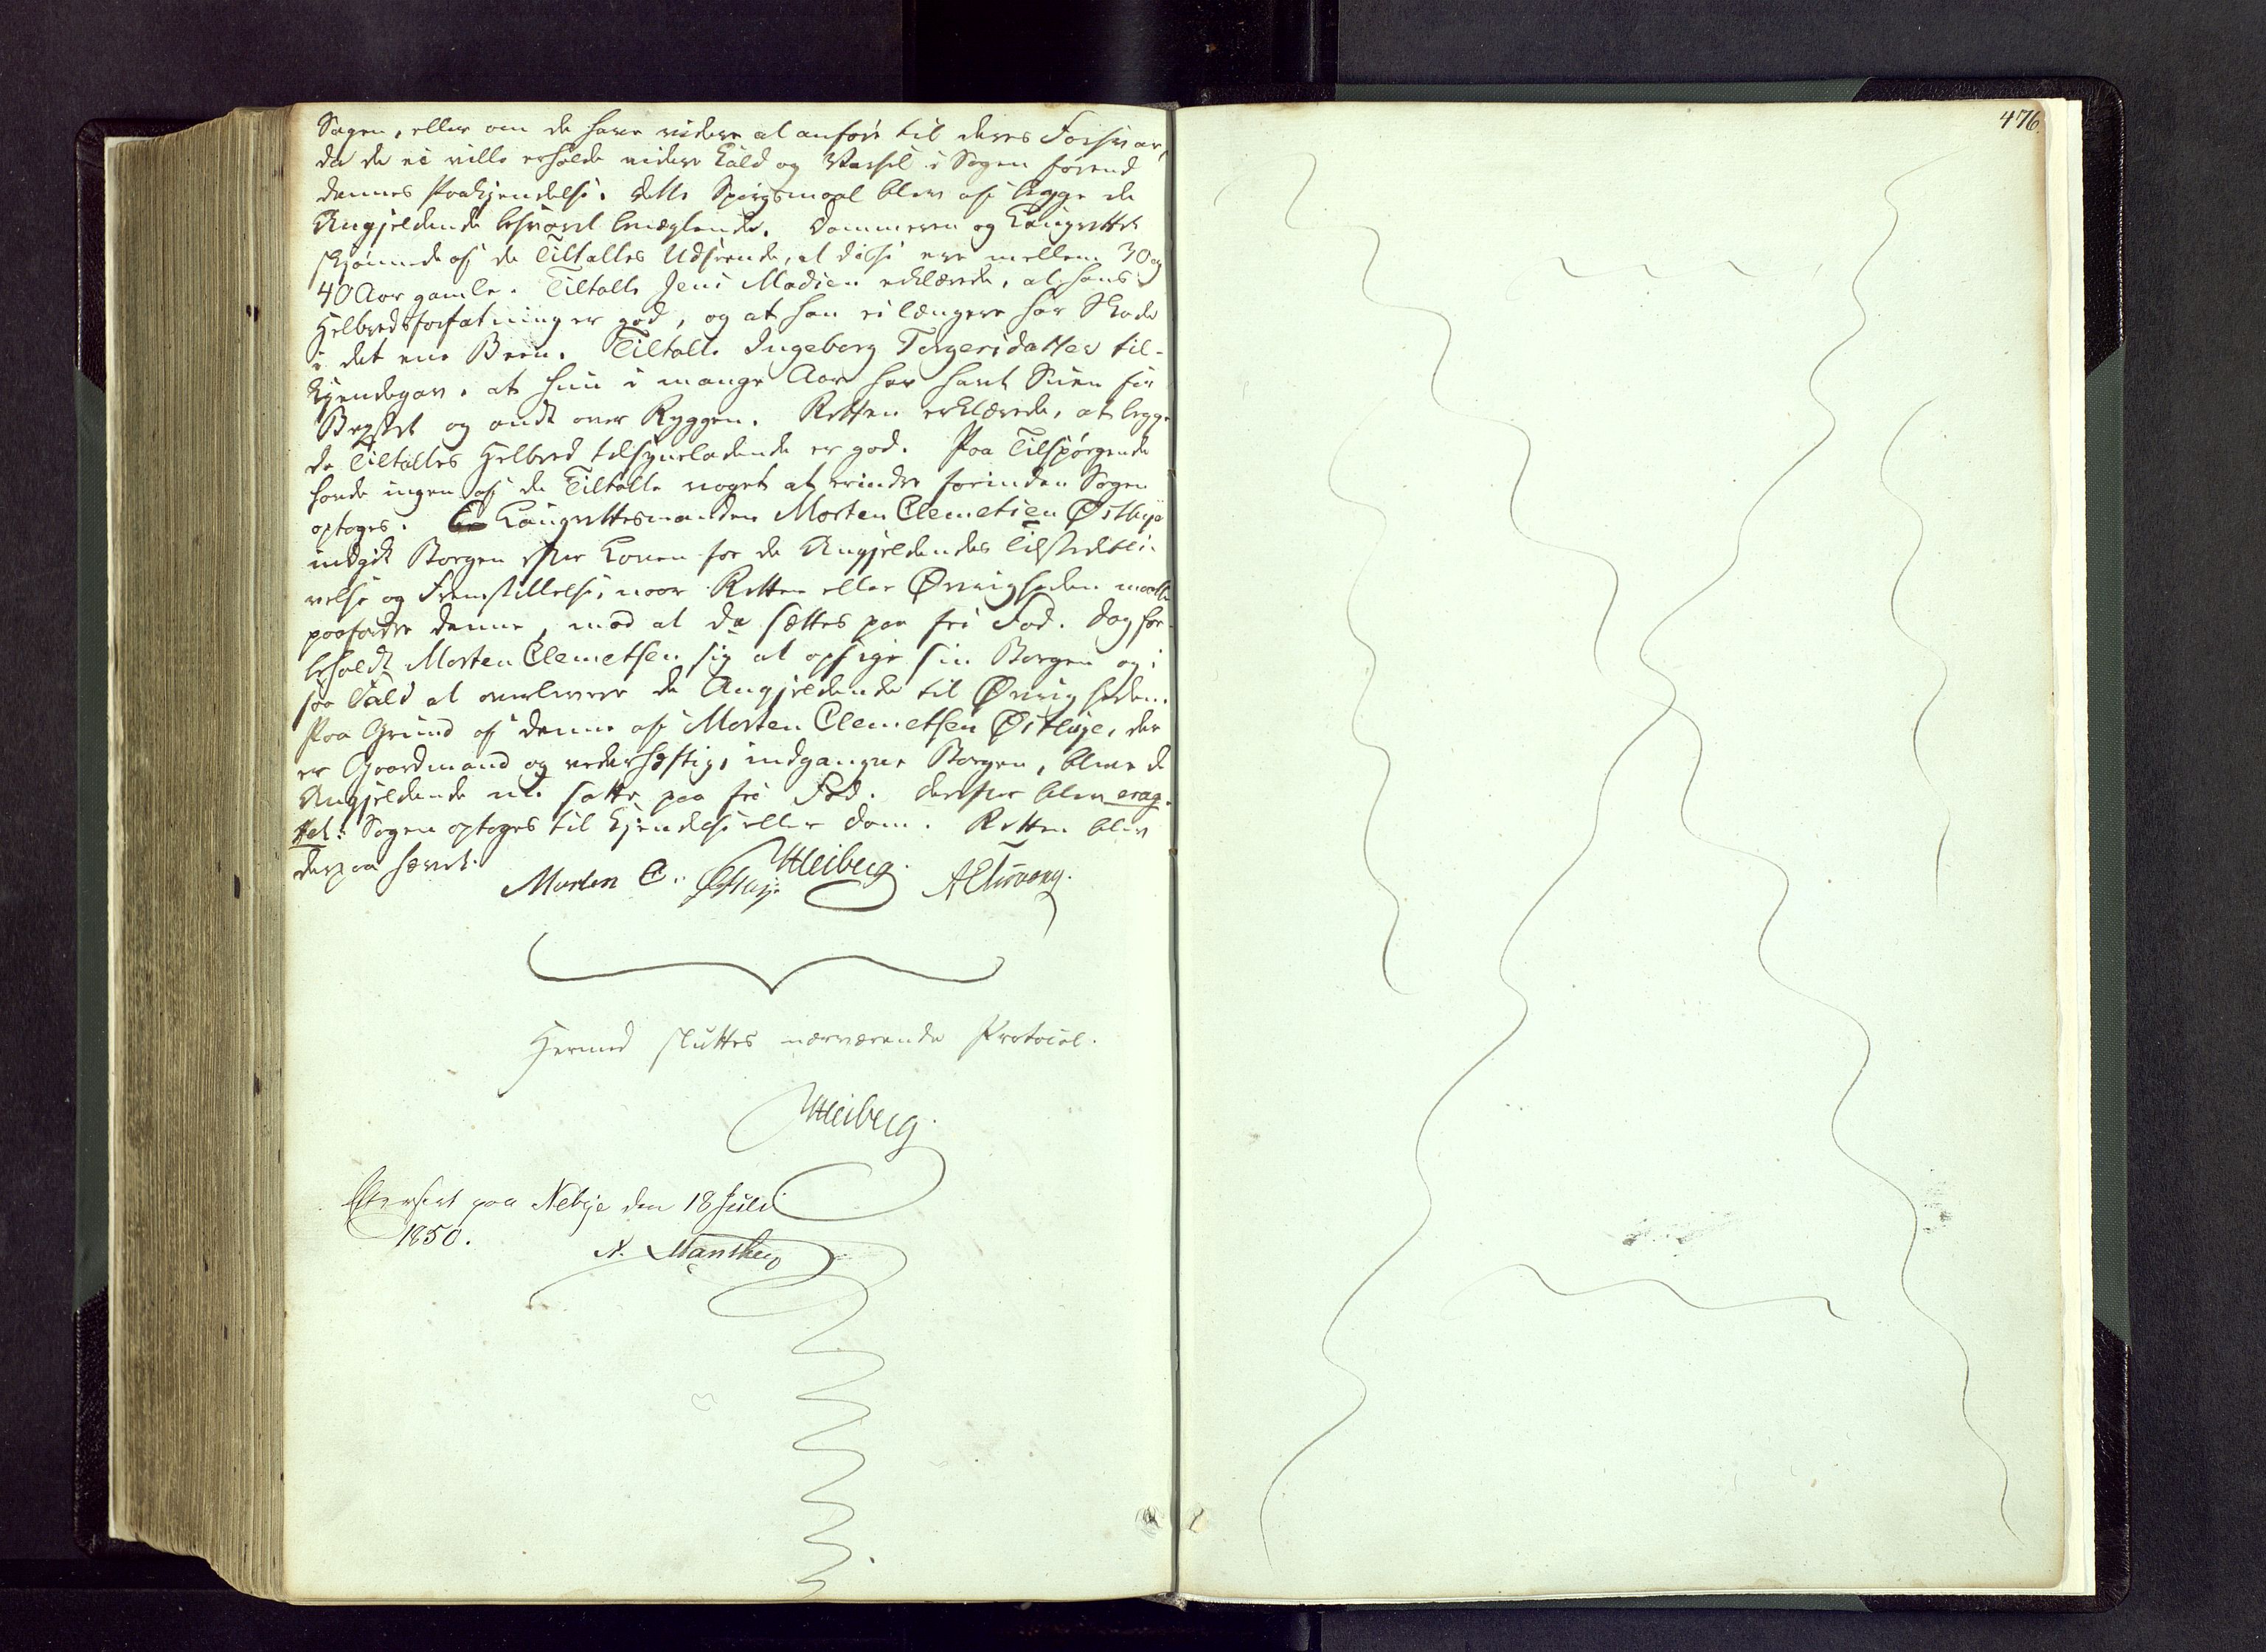 Sagen, eller om de have videre at anføre til deres Forsvar,
da de ei ville erholde videre Kald og Varsel i Sagen forend
dennes Paakjendelse. dette Spørgsmaal blev af begge de
Angjeldende besvaret benægtende. Dommeren og Laugrettet
skjønnede af de Tiltaltes Udseende, at disse ere mellem 30 og
40 Aar gamle. Tiltalte Jens Madsen erklærede, at hans
Helbredsforfatning er god, og at han ei længere har Skade
i det ene Been. Tiltalte Ingeborg Torgersdatter til-
kjendegav, at hun i mange Aar har havt Svien for
Brystet og ondt over Ryggen. Retten erklærede, at begge
de Tiltaltes Helbred tilsyneladende er god. Paa Tilspørgende
havde ingen af de Tiltalte noget at erindre forinden Sagen
optoges. Laugrettesmanden Morten Clemetsen Østbye
indgik Borgen efter Loven for de Angjeldendes Tilstedebli-
velse og Fremstillelse, naar Retten eller Øvrigheden maatte
paafordre denne, mod at de sættes paa fri Fod. Dog for-
beholdt Morten Clemetsen sig at opsige sin Borgen og i
saa Fald at overlevere de Angjeldende til Øvrigheden.
Paa Grund af denne af Morten Clemetsen Østbye, der
er Gaardmand og vederhæftig, indgangne Borgen, bleve de
Angjeldende nu satte paa fri Fod. Derefter blev erag-
tet: Sagen optages til Kjendelse eller Dom. Retten blev
derpaa hævet.
Heiberg.
Morten C. Østbye
Hermed sluttes nærværende Protocol.
Heiberg.
Efterseet paa Nebye den 18 Juli
1850.
476.